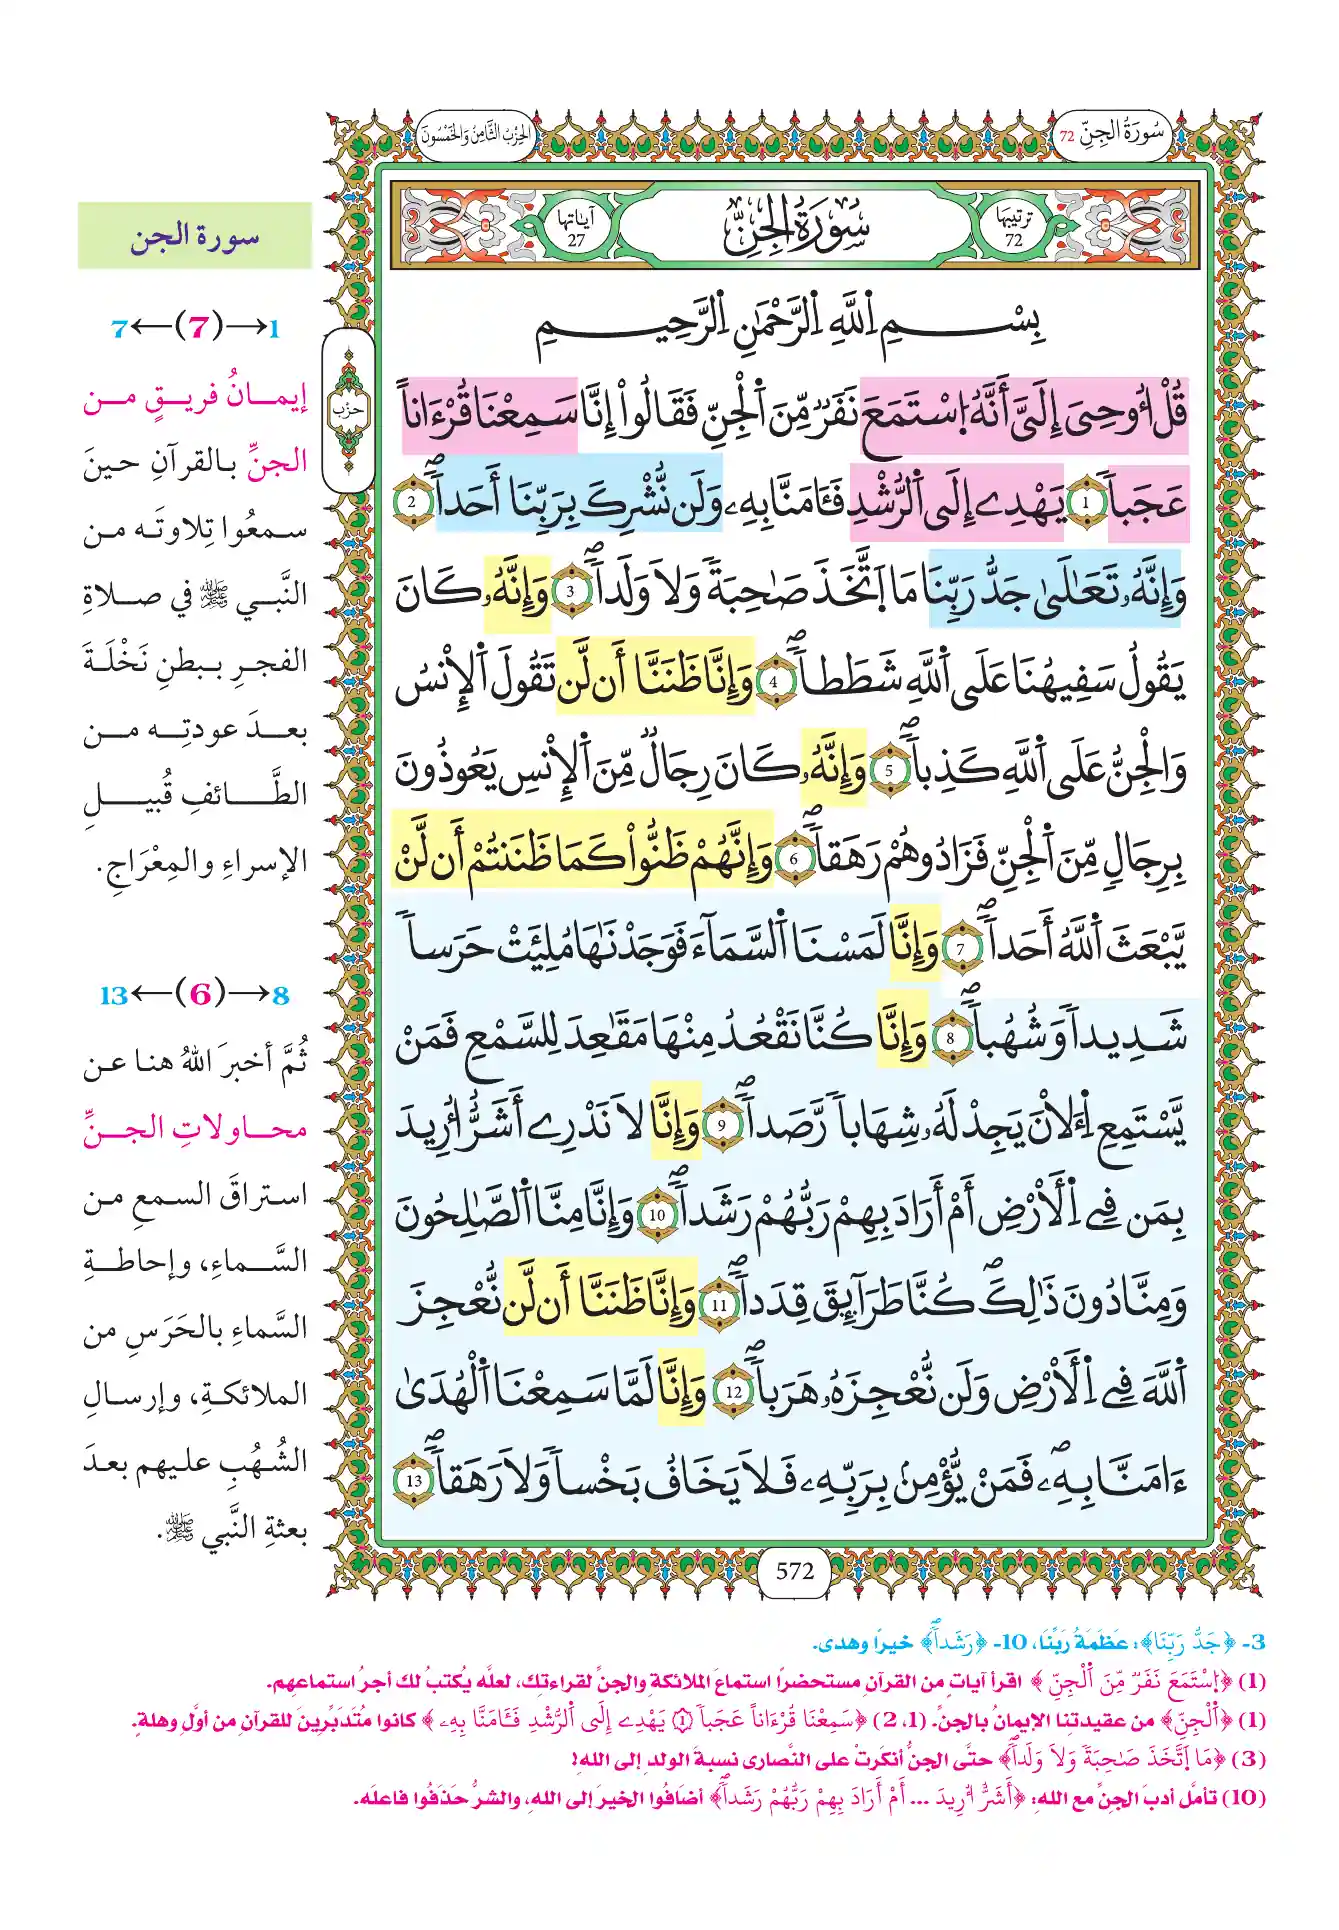 سُورَةُ الجِنِّ 72
الحِزْبُ الثَّامِنُ وَالخَمْسُونَ
ترتيبها 72
سُورَةُ الجِنِّ
آياتها 27
بِسْمِ اِ۬للَّهِ اِ۬لرَّحْمَٰنِ اِ۬لرَّحِيمِ
قُلُ ا۟وحِىَ إِلَىَّ أَنَّهُ اُ۪سْتَمَعَ نَفَرٞ مِّنَ اَ۬لْجِنِّ فَقَالُوٓاْ إِنَّا سَمِعْنَا قُرْءَاناً
عَجَباٗ 1 يَهْدِےٓ إِلَى اَ۬لرُّشْدِ فَـَٔامَنَّا بِهِۦ وَلَن نُّشْرِكَ بِرَبِّنَآ أَحَداٗۖ 2
وَإِنَّهُۥ تَعَٰلَىٰ جَدُّ رَبِّنَا مَا اَ۪تَّخَذَ صَٰحِبَةٗ وَلَا وَلَداٗۖ 3 وَإِنَّهُۥ كَانَ
يَقُولُ سَفِيهُنَا عَلَى اَ۬للَّهِ شَطَطاٗۖ 4 وَإِنَّا ظَنَنَّآ أَن لَّن تَقُولَ اَ۬لْإِنسُ
وَالْجِنُّ عَلَى اَ۬للَّهِ كَذِباٗۖ 5 وَإِنَّهُۥ كَانَ رِجَالٞ مِّنَ اَ۬لْإِنسِ يَعُوذُونَ
بِرِجَالٖ مِّنَ اَ۬لْجِنِّ فَزَادُوهُمْ رَهَقاٗۖ 6 وَإِنَّهُمْ ظَنُّواْ كَمَا ظَنَنتُمْ أَن لَّنْ
يَّبْعَثَ اَ۬للَّهُ أَحَداٗۖ 7 وَإِنَّا لَمَسْنَا اَ۬لسَّمَآءَ فَوَجَدْنَٰهَا مُلِئَتْ حَرَساٗ
شَدِيداٗ وَشُهُباٗۖ 8 وَإِنَّا كُنَّا نَقْعُدُ مِنْهَا مَقَٰعِدَ لِلسَّمْعِ فَمَنْ
يَّسْتَمِعِ اِ۬لَانَ يَجِدْ لَهُۥ شِهَاباٗ رَّصَداٗۖ 9 وَإِنَّا لَا نَدْرِےٓ أَشَرٌّ ا۟رِيدَ
بِمَن فِے اِ۬لْأَرْضِ أَمْ أَرَادَ بِهِمْ رَبُّهُمْ رَشَداٗۖ 10 وَإِنَّا مِنَّا اَ۬لصَّٰلِحُونَ
وَمِنَّا دُونَ ذَٰلِكَۖ كُنَّا طَرَآئِقَ قِدَداٗۖ 11 وَإِنَّا ظَنَنَّآ أَن لَّن نُّعْجِزَ
اَ۬للَّهَ فِے اِ۬لْأَرْضِ وَلَن نُّعْجِزَهُۥ هَرَباٗۖ 12 وَإِنَّا لَمَّا سَمِعْنَا اَ۬لْهُدَىٰٓ
ءَامَنَّا بِهِۦۖ فَمَنْ يُّؤْمِنۢ بِرَبِّهِۦ فَلَا يَخَافُ بَخْساٗ وَلَا رَهَقاٗۖ 13
حزب
572
سورة الجن
1→(7)←7
إيمانُ فريقٍ من
الجنِّ بالقرآنِ حينَ
سمعُوا تِلاوتَه من
النَّبي ﷺ في صلاةِ
الفجرِ ببطنِ نَخْلَةَ
بعدَ عودتِه من
الطَّائفِ قُبيلَ
الإسراءِ والمِعْرَاجِ.
8→(6)←13
ثُمَّ أخبرَ اللهُ هنا عن
محاولاتِ الجنِّ
استراقَ السمعِ من
السَّماءِ، وإحاطةِ
السَّماءِ بالحَرَسِ من
الملائكةِ، وإرسالِ
الشُهُبِ عليهم بعدَ
بعثةِ النَّبي ﷺ.
3- ﴿جَدُّ رَبِّنَا﴾: عَظَمَةُ رَبِّنَا، 10- ﴿رَشَداٗۖ﴾ خيرًا وهدى.
(1) ﴿اُ۪سْتَمَعَ نَفَرٞ مِّنَ اَ۬لْجِنِّ﴾ اقرأ آياتٍ من القرآنِ مستحضرًا استماعَ الملائكةِ والجنِّ لقراءتِك، لعلَّه يُكتبُ لك أجرُ استماعِهم.
(1) ﴿اَ۬لْجِنِّ﴾ من عقيدتِنا الإيمانُ بالجنِّ. (1، 2) ﴿سَمِعْنَا قُرْءَاناً عَجَباٗ 1 يَهْدِےٓ إِلَى اَ۬لرُّشْدِ فَـَٔامَنَّا بِهِۦ﴾ كانوا مُتَدَبِّرِينَ للقرآنِ من أوَّلِ وهلةٍ.
(3) ﴿مَا اَ۪تَّخَذَ صَٰحِبَةٗ وَلَا وَلَداٗۖ﴾ حتَّى الجنُّ أنكرَتْ على النَّصارى نسبةَ الولدِ إلى اللهِ!
(10) تأمَّل أدبَ الجنِّ مع اللهِ: ﴿أَشَرٌّ ا۟رِيدَ ... أَمْ أَرَادَ بِهِمْ رَبُّهُمْ رَشَداٗۖ﴾ أضَافُوا الخيرَ إلى اللهِ، والشرُّ حَذَفُوا فاعلَه.